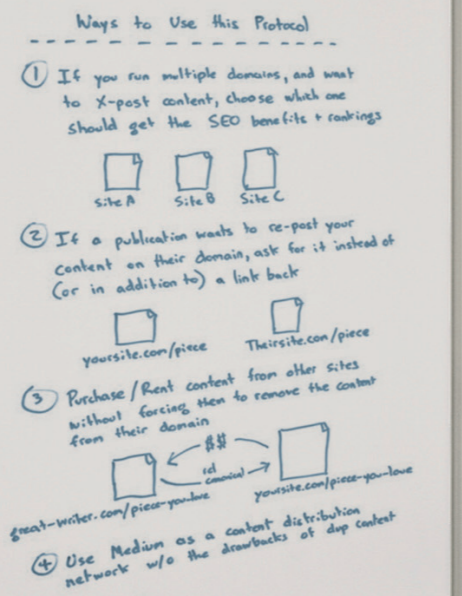 Ways to Use this Protocol
1 If you run multiple domains, and want
to X-post content, choose which one
should get the SEO benefits + rankings
Site A Site B Site C
2 If a publication wants to re-post your
content on their domain, ask for it instead of
(or in addition to) a link back
yoursite.com/piece Theirsite.com/piece
3 Purchase/Rent content from other sites
without forcing them to remove the content
from their domain
$$
rel
canonical
great-writer.com/piece-you-love yoursite.com/piece-you-love
4 Use Medium as a content distribution
network w/o the drawbacks of dup content